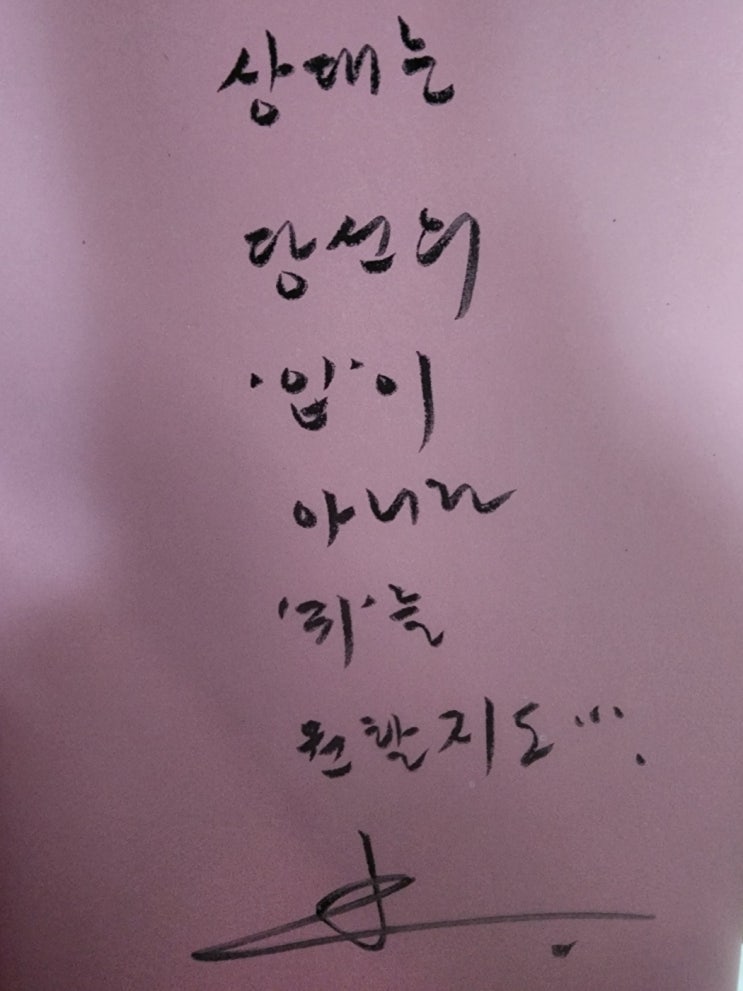 상대는
당신의
'입'이
아니라
'귀'를
원할지도....